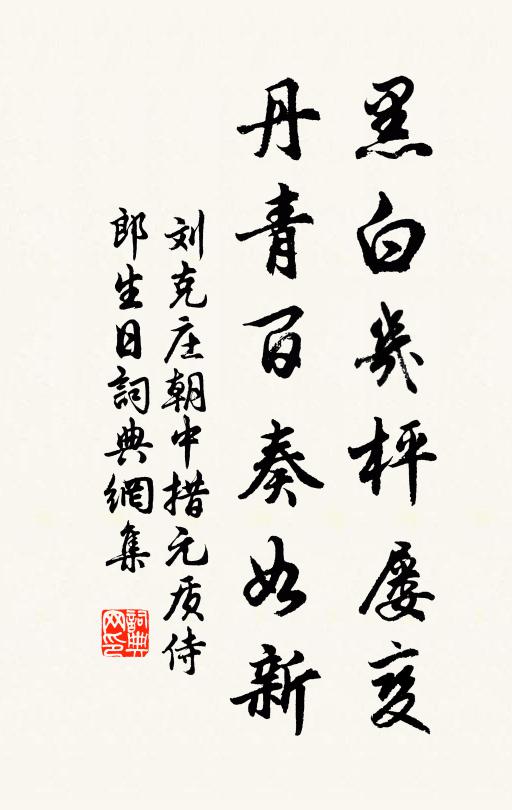 黑白幾枰屡变
丹青百奏如新
刘克庄朝中措元质侍
郎生日詞典網集
詞典网印